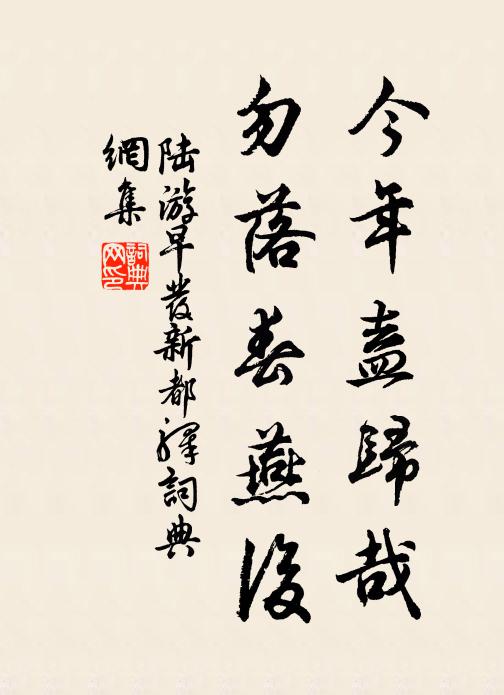 今年盍歸哉
勿落春燕後
陆游早發新都驛詞典
網集
詞典
网印